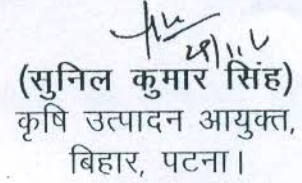 (सुनिल कुमार सिंह)
कृषि उत्पादन आयुक्त,
बिहार, पटना।